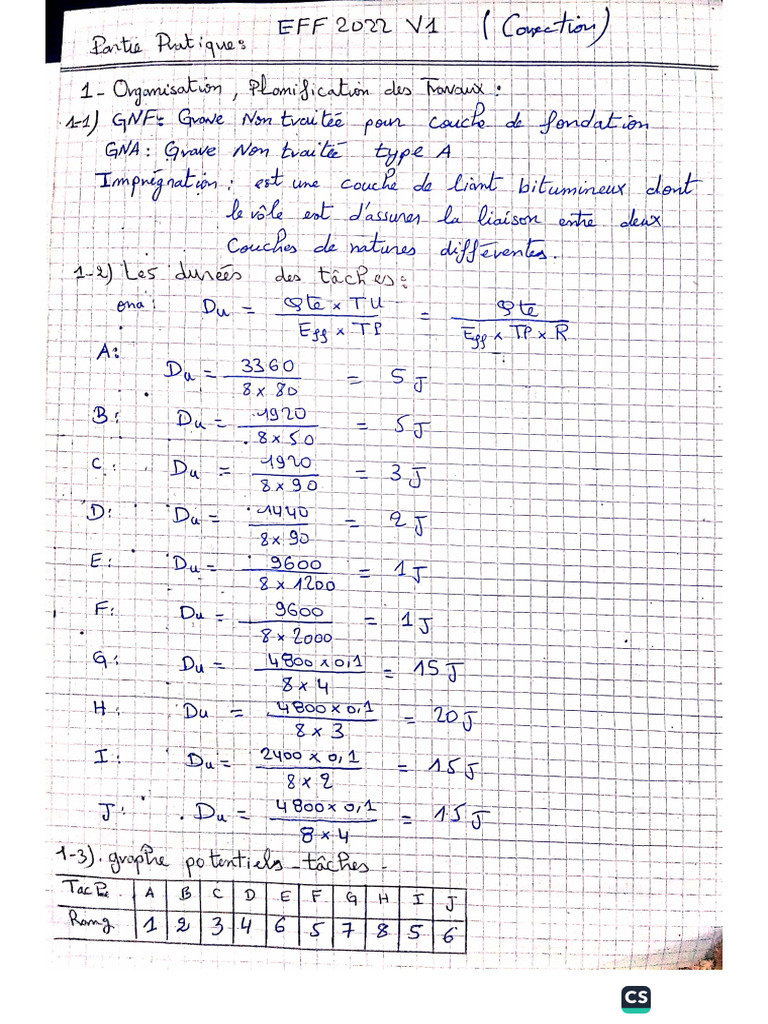 EFF 2022 V1 (Correction)
Partie Pratique:
1- Organisation, Planification des Travaux:
1-1) GNF: Grave Non traitée pour couche de fondation
GNA: Grave Non traitée type A
Imprégnation: est une couche de liant bitumineux dont
le rôle est d'assures la liaison entre deux
Couches de natures différentes.
1-2) Les durées des tâches:
ona: Du = Qte x TU / Eff x TP = Qte / Eff x TP x R
A: Du = 3360 / 8 x 80 = 5 J
B: Du = 1920 / 8 x 50 = 5 J
C: Du = 1920 / 8 x 90 = 3 J
D: Du = 1440 / 8 x 90 = 2 J
E: Du = 9600 / 8 x 1200 = 1 J
F: Du = 9600 / 8 x 2000 = 1 J
G: Du = 4800 x 0,1 / 8 x 4 = 15 J
H: Du = 4800 x 0,1 / 8 x 3 = 20 J
I: Du = 2400 x 0,1 / 8 x 2 = 15 J
J: Du = 4800 x 0,1 / 8 x 4 = 15 J
1-3). graphe potentiels-tâches-
Tache A B C D E F G H I J
Rang 1 2 3 4 6 5 7 8 5 6
CS